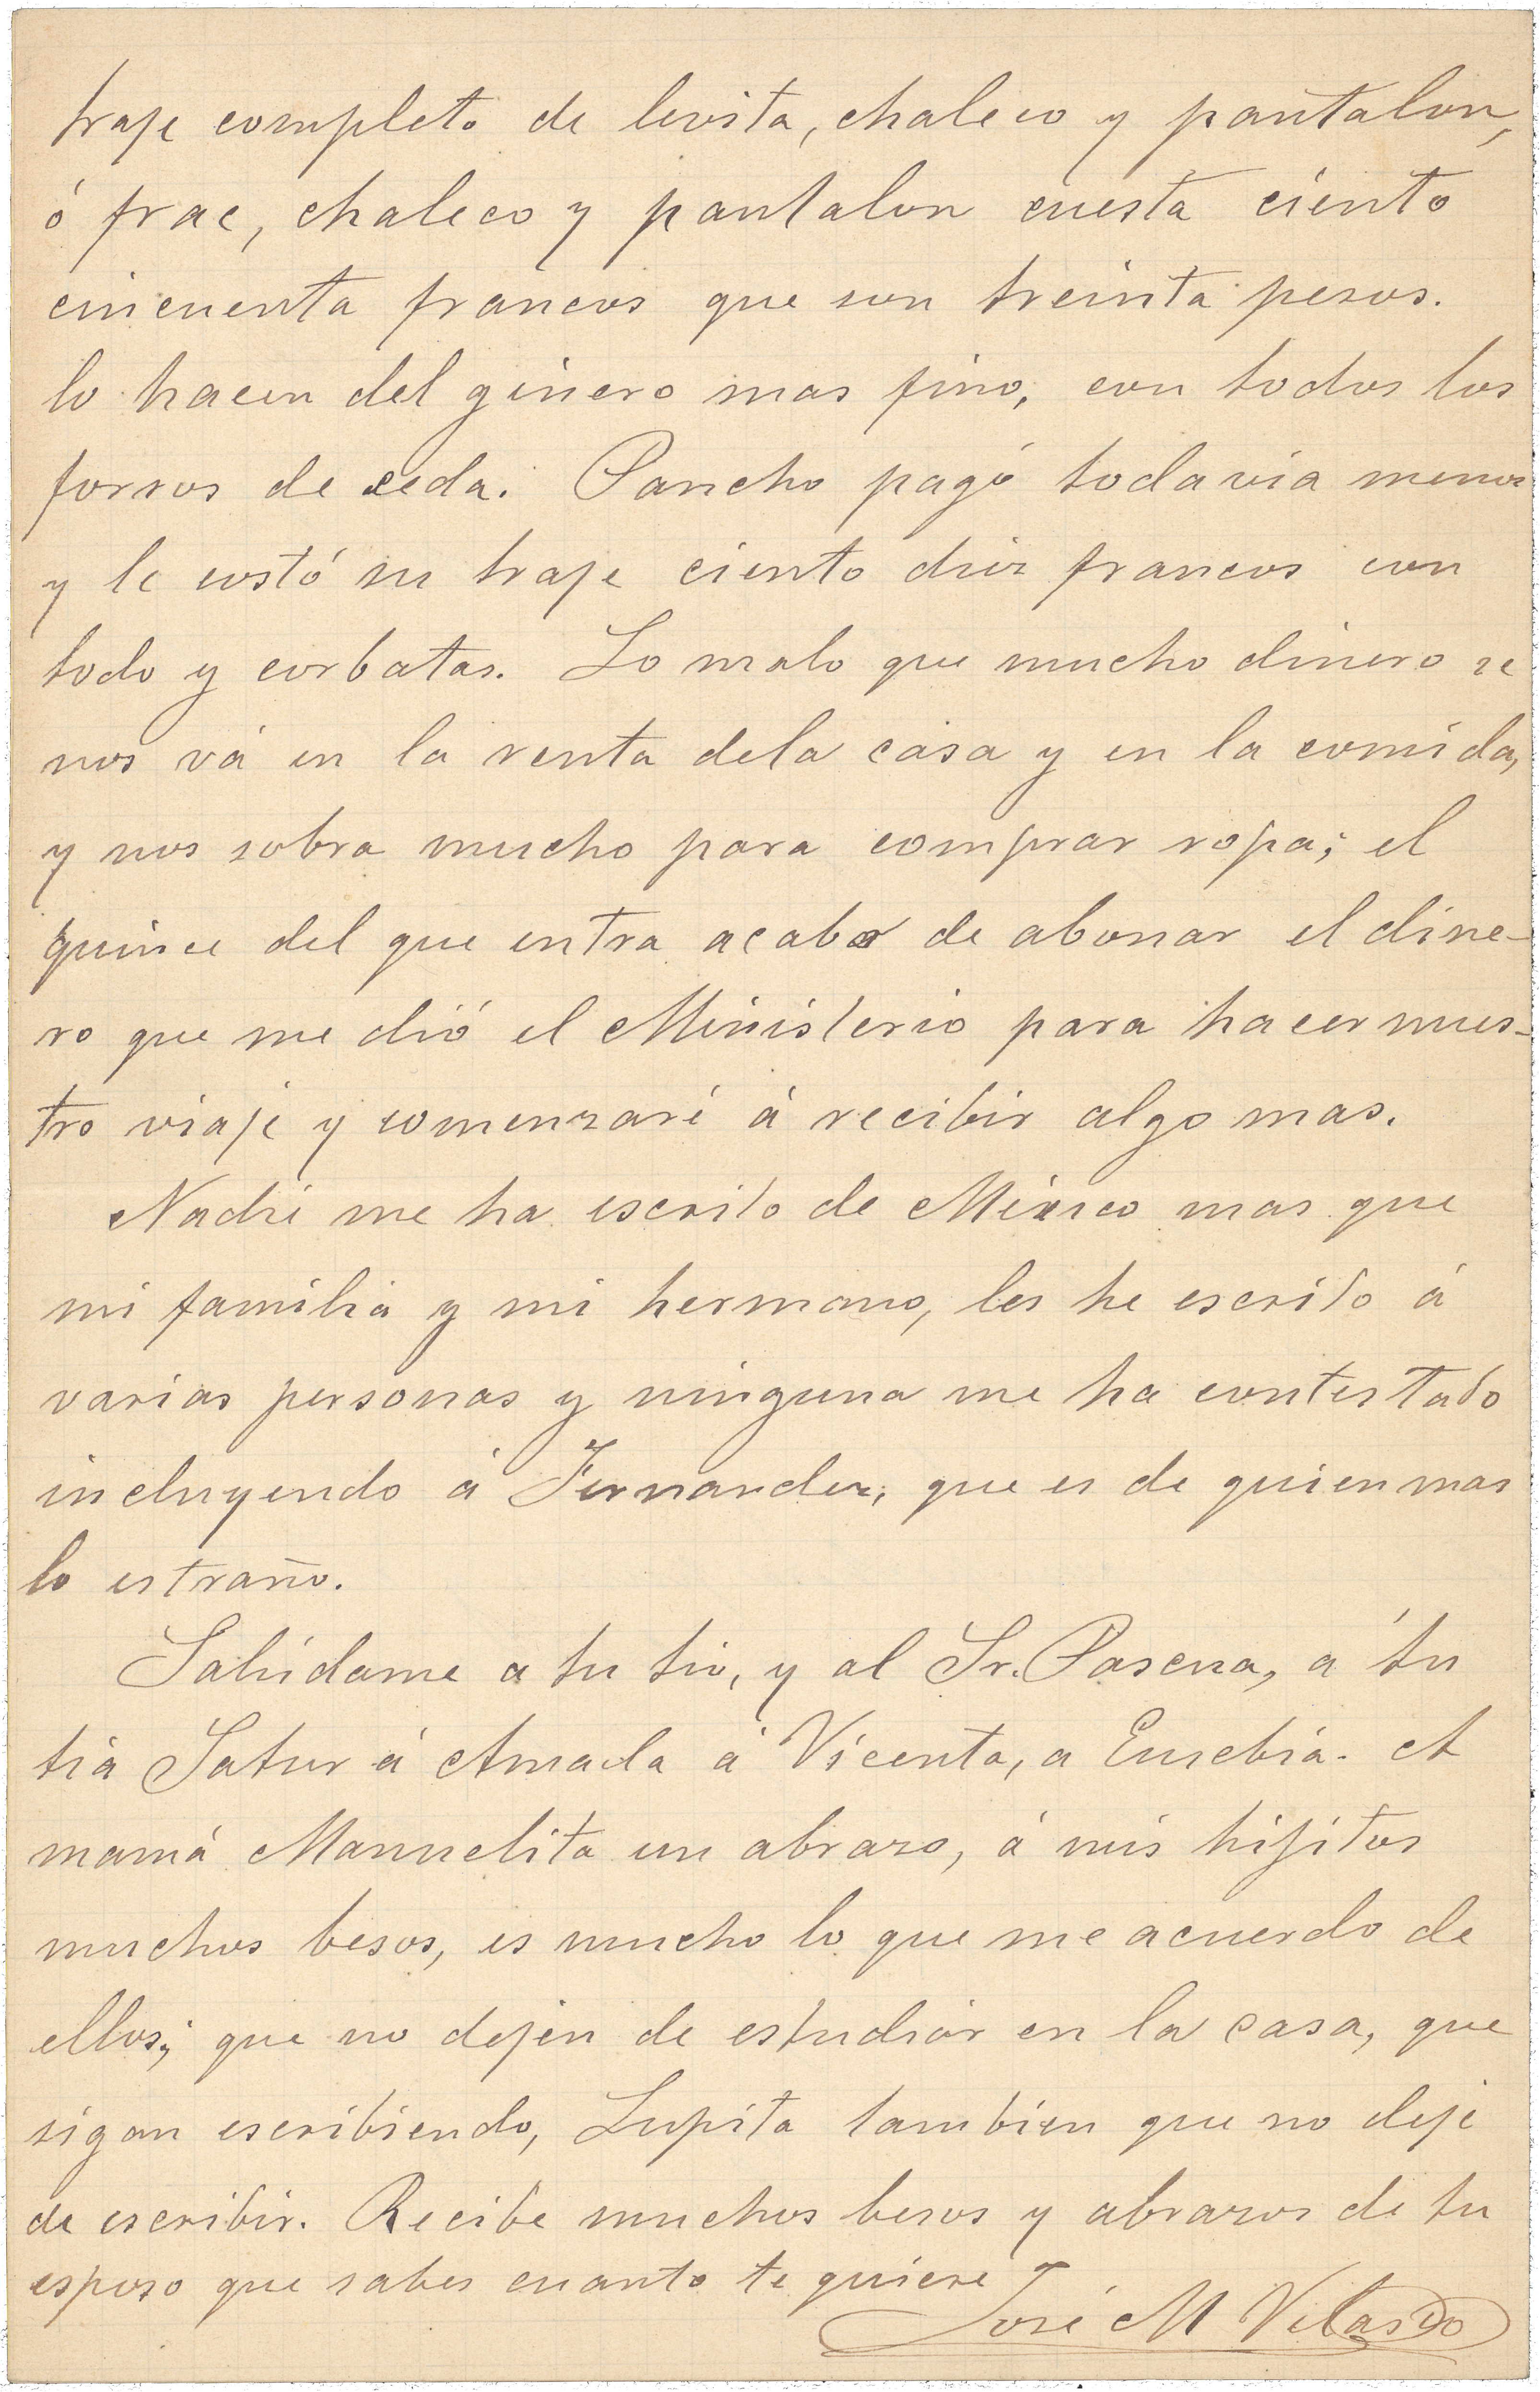 traje completo de levita, chaleco y pantalon,
ó frac, chaleco y pantalon cuesta ciento
cincuenta francos que son treinta pesos.
lo hacen del género mas fino, con todos los
forros de seda. Pancho pagó todavia menos
y le costó su traje ciento diez francos con
todo y corbatas. Lo malo que mucho dinero se
nos vá en la renta dela casa y en la comida,
y nos sobra mucho para comprar ropa; el
quince del que entra acabo de abonar el dine-
ro que me dió el Ministerio para hacer nues-
tro viaje y comenzaré á recibir algo mas.
Nadie me ha escrito de México mas que
mi familia y mi hermano, les he escrito á
varias personas y ninguna me ha contestado
incluyendo á Fernandez, que es de quien mas
lo estraño.
Salúdame a tu tio, y al Sr. Pascua, a tu
tia Satur á Amada á Vicenta, a Eusebia. A
mamá Manuelita un abrazo, á mis hijitos
muchos besos, es mucho lo que me acuerdo de
ellos; que no dejen de estudiar en la casa, que
sigan escribiendo, Lupita tambien que no deje
de escribir. Recibe muchos besos y abrazos de tu
esposo que sabes cuanto te quiere
José M Velasco